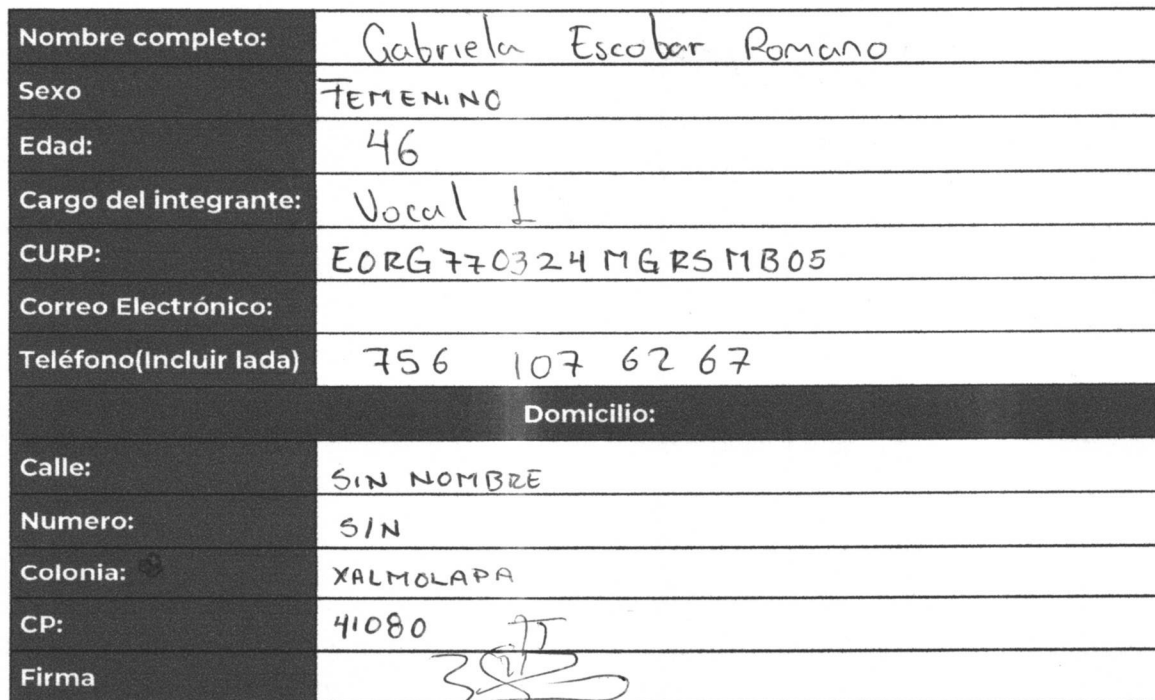 Nombre completo: Gabriela Escobar Romano
Sexo FEMENINO
Edad: 46
Cargo del integrante: Vocal 1
CURP: EORG770324MGRSMB05
Correo Electrónico:
Teléfono(Incluir lada) 756 107 62 67
Domicilio:
Calle: SIN NOMBRE
Numero: S/N
Colonia: XALMOLAPA
CP: 41080
Firma